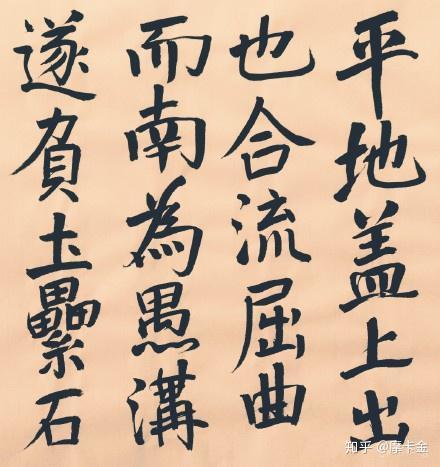 平地盖上出
也合流屈曲
而南為愚溝
遂負土壘石
知乎 @摩卡金